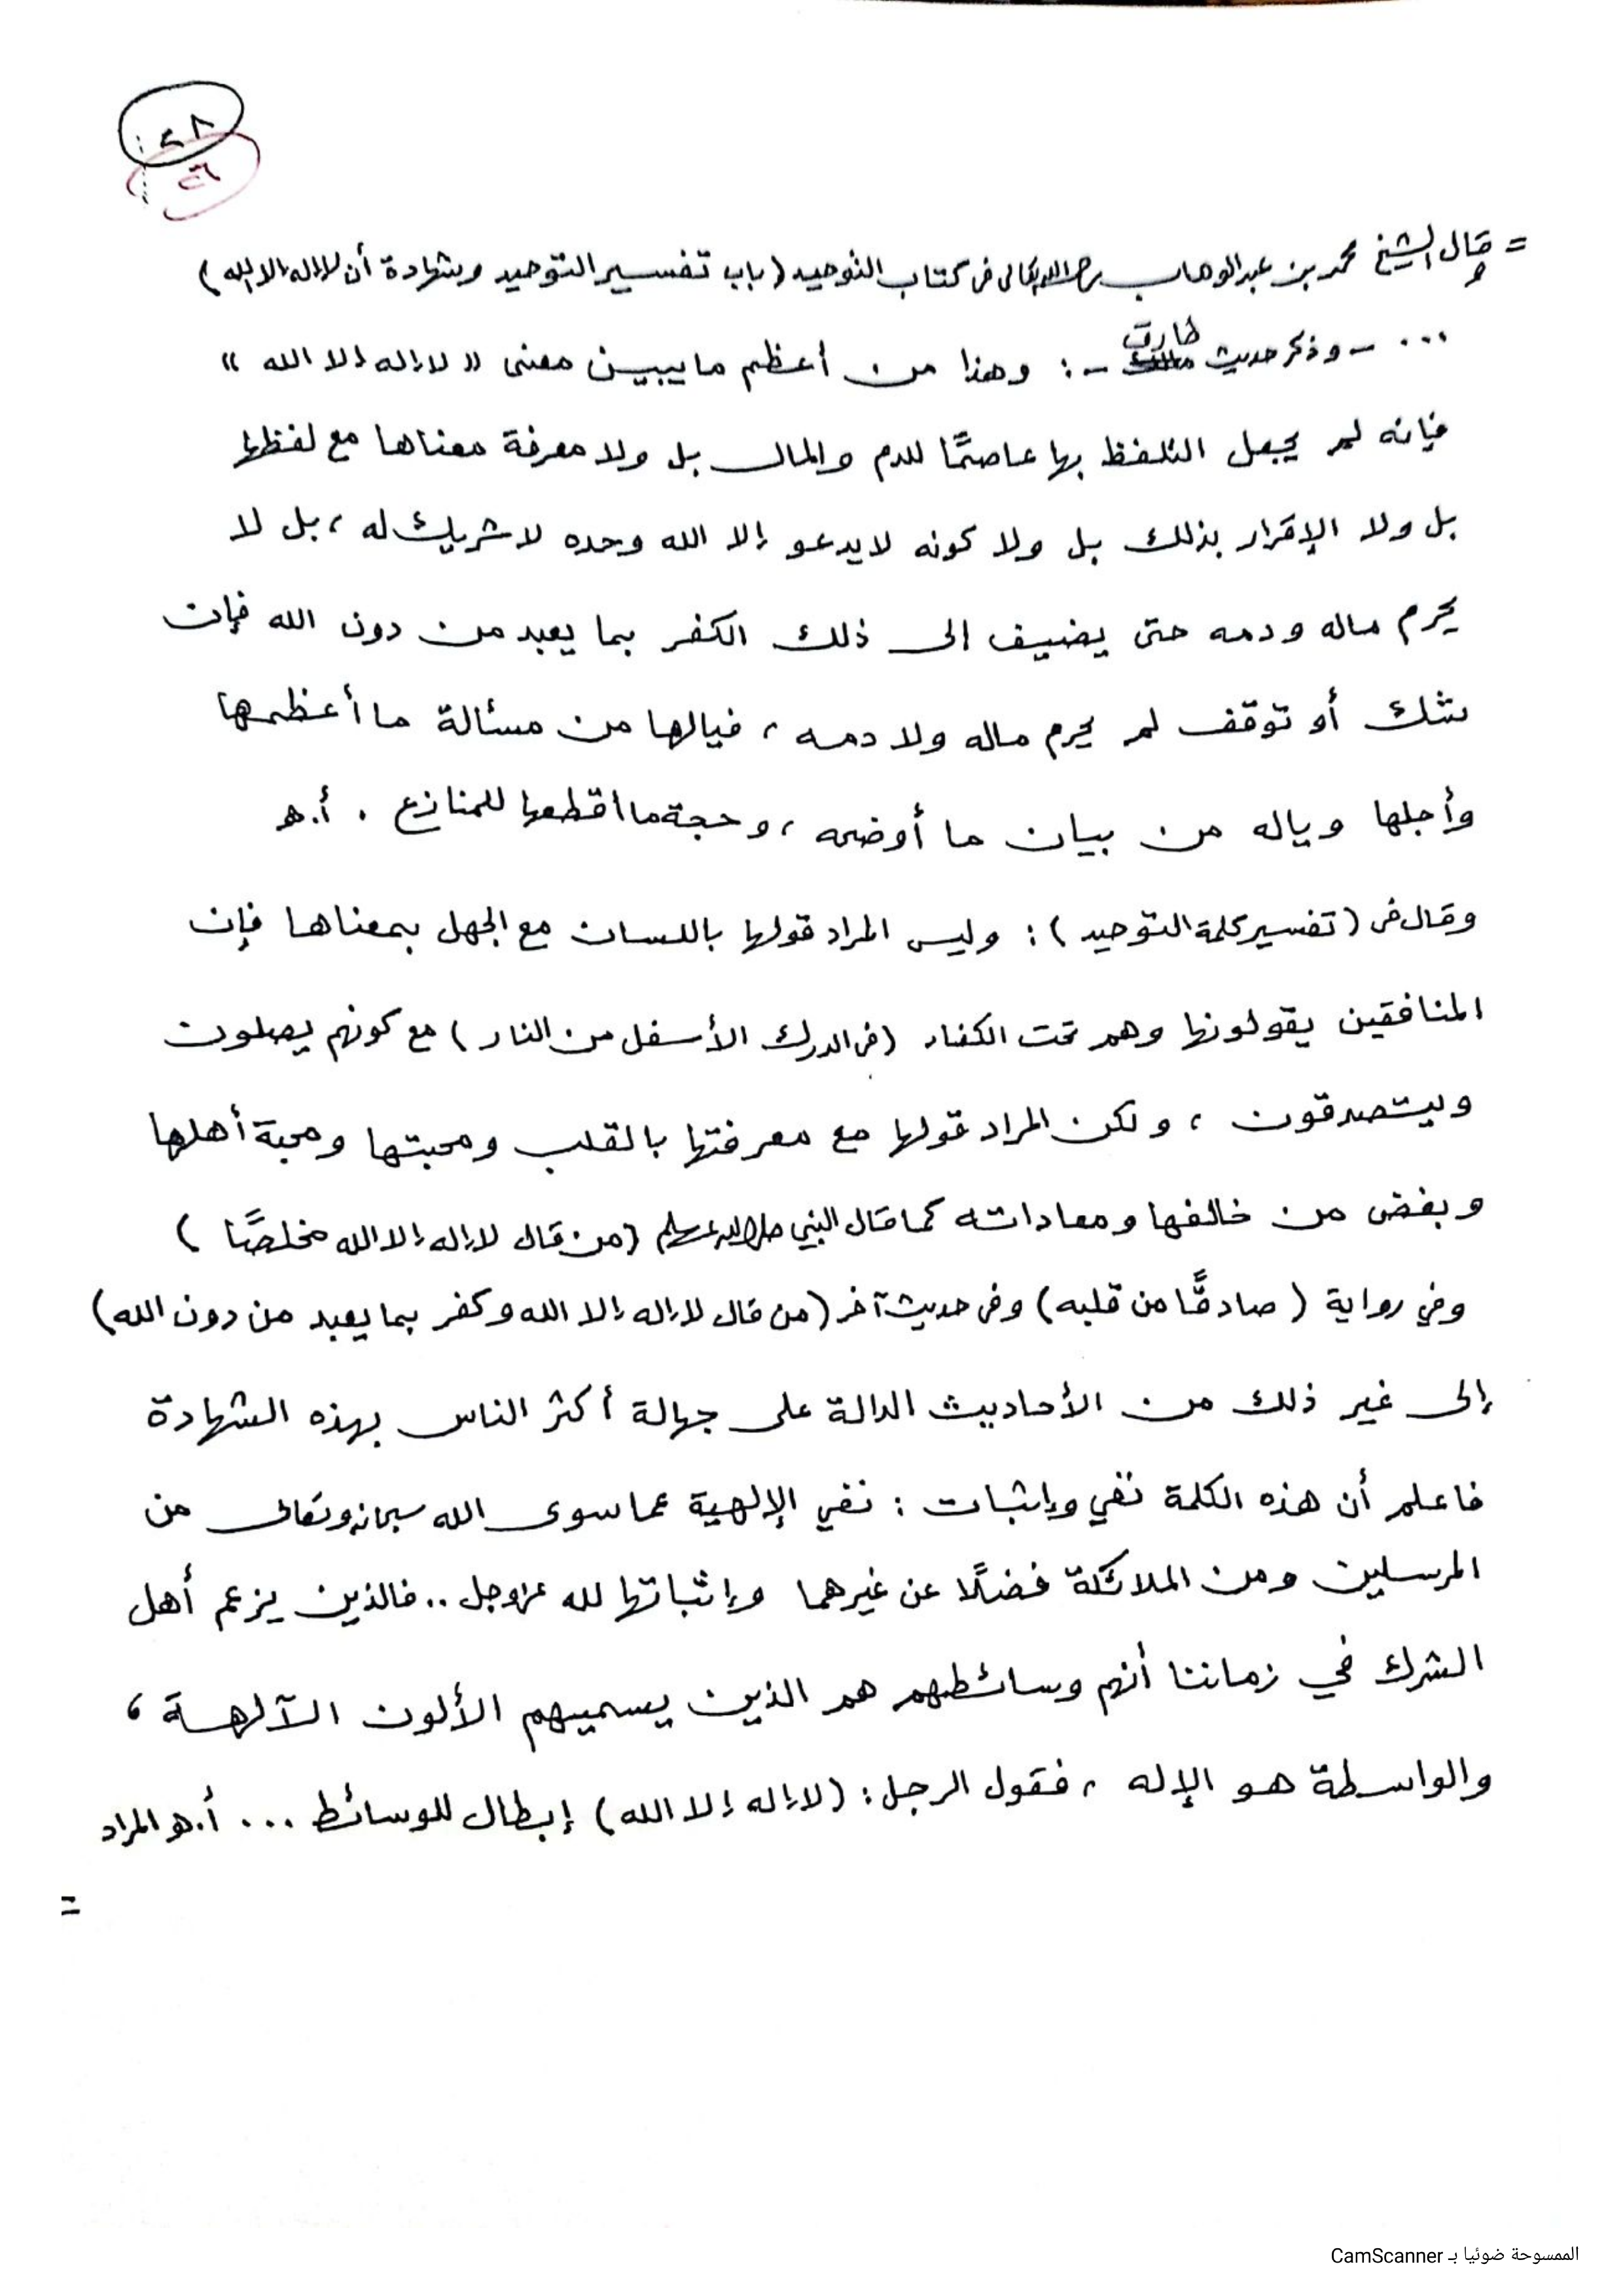 ٤٨
٤٦
= قال الشيخ محمد بن عبدالوهاب رحمه الله تعالى في كتاب التوحيد (باب تفسير التوحيد وشهادة أن لا إله إلا الله)
... - وذكر حديث طارق - : وهذا من أعظم ما يبين معنى « لا إله إلا الله »
فإنه لم يجعل التلفظ بها عاصمًا للدم والمال بل ولا معرفة معناها مع لفظها
بل ولا الإقرار بذلك بل ولا كونه لا يدعو إلا الله وحده لا شريك له ، بل لا
يحرم ماله ودمه حتى يضيف إلى ذلك الكفر بما يعبد من دون الله فإن
شك أو توقف لم يحرم ماله ولا دمه ، فيالها من مسئالة ما أعظمها
وأجلها وياله من بيان ما أوضحه ، وحجة ما أقطعها للمنازع . أ.هـ
وقال في (تفسير كلمة التوحيد) : وليس المراد قولها باللسان مع الجهل بمعناها فإن
المنافقين يقولونها وهم تحت الكفار (في الدرك الأسفل من النار) مع كونهم يصلون
ويتصدقون ، ولكن المراد قولها مع معرفتها بالقلب ومحبتها ومحبة أهلها
وبغض من خالفها ومعاداته كما قال النبي صلى الله عليه وسلم (من قال لا إله إلا الله مخلصًا )
وفي رواية ( صادقًا من قلبه) وفي حديث آخر (من قال لا إله إلا الله وكفر بما يعبد من دون الله)
إلى غير ذلك من الأحاديث الدالة على جهالة أكثر الناس بهذه الشهادة
فاعلم أن هذه الكلمة نفي وإثبات : نفي الإلهية عما سوى الله سبحانه وتعالى من
المرسلين ومن الملائكة فضلًا عن غيرهما وإثباتها لله عز وجل .. فالذين يزعم أهل
الشرك في زماننا أنهم وسائطهم هم الذين يسميهم الألون الآلهة ،
والواسطة هو الإله ، فقول الرجل : (لا إله إلا الله) إبطال للوسائط ... أ.هـ المراد
=
الممسوحة ضوئيا بـ CamScanner